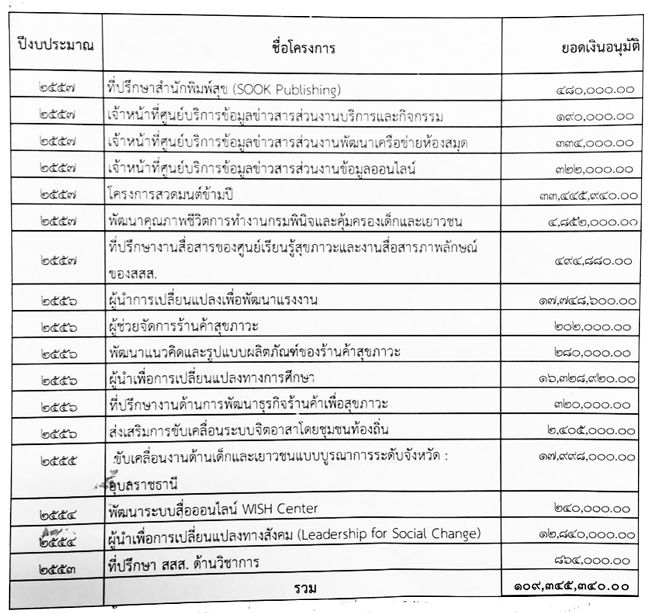 ปีงบประมาณ ชื่อโครงการ ยอดเงินอนุมัติ
๒๕๕๗ ที่ปรึกษาสำนักพิมพ์สุข (SOOK Publishing) ๔๘๐,๐๐๐.๐๐
๒๕๕๗ เจ้าหน้าที่ศูนย์บริการข้อมูลข่าวสารส่วนงานบริการและกิจกรรม ๑๙๐,๐๐๐.๐๐
๒๕๕๗ เจ้าหน้าที่ศูนย์บริการข้อมูลข่าวสารส่วนงานพัฒนาเครือข่ายห้องสมุด ๓๓๔,๐๐๐.๐๐
๒๕๕๗ เจ้าหน้าที่ศูนย์บริการข้อมูลข่าวสารส่วนงานข้อมูลออนไลน์ ๓๒๒,๐๐๐.๐๐
๒๕๕๗ โครงการสวดมนต์ข้ามปี ๓๓,๔๔๕,๙๔๐.๐๐
๒๕๕๗ พัฒนาคุณภาพชีวิตการทำงานกรมพินิจและคุ้มครองเด็กและเยาวชน ๔,๘๕๒,๐๐๐.๐๐
๒๕๕๗ ที่ปรึกษางานสื่อสารของศูนย์เรียนรู้สุขภาวะและงานสื่อสารภาพลักษณ์ ๔๙๔,๘๘๐.๐๐
ของสสส.
๒๕๕๖ ผู้นำการเปลี่ยนแปลงเพื่อพัฒนาแรงงาน ๑๗,๗๔๘,๖๐๐.๐๐
๒๕๕๖ ผู้ช่วยจัดการร้านค้าสุขภาวะ ๒๐๒,๐๐๐.๐๐
๒๕๕๖ พัฒนาแนวคิดและรูปแบบผลิตภัณฑ์ของร้านค้าสุขภาวะ ๒๘๐,๐๐๐.๐๐
๒๕๕๖ ผู้นำเพื่อการเปลี่ยนแปลงทางการศึกษา ๑๖,๓๒๘,๙๒๐.๐๐
๒๕๕๖ ที่ปรึกษางานด้านการพัฒนาธุรกิจร้านค้าเพื่อสุขภาวะ ๓๒๐,๐๐๐.๐๐
๒๕๕๖ ส่งเสริมการขับเคลื่อนระบบจิตอาสาโดยชุมชนท้องถิ่น ๒,๔๐๕,๐๐๐.๐๐
๒๕๕๕ ขับเคลื่อนงานด้านเด็กและเยาวชนแบบบูรณาการระดับจังหวัด : ๑๗,๙๙๘,๐๐๐.๐๐
อุบลราชธานี
๒๕๕๔ พัฒนาระบบสื่อออนไลน์ WISH Center ๒๔๐,๐๐๐.๐๐
๒๕๕๔ ผู้นำเพื่อการเปลี่ยนแปลงทางสังคม (Leadership for Social Change) ๑๒,๘๔๐,๐๐๐.๐๐
๒๕๕๓ ที่ปรึกษา สสส. ด้านวิชาการ ๘๖๔,๐๐๐.๐๐
รวม ๑๐๙,๓๔๕,๓๔๐.๐๐